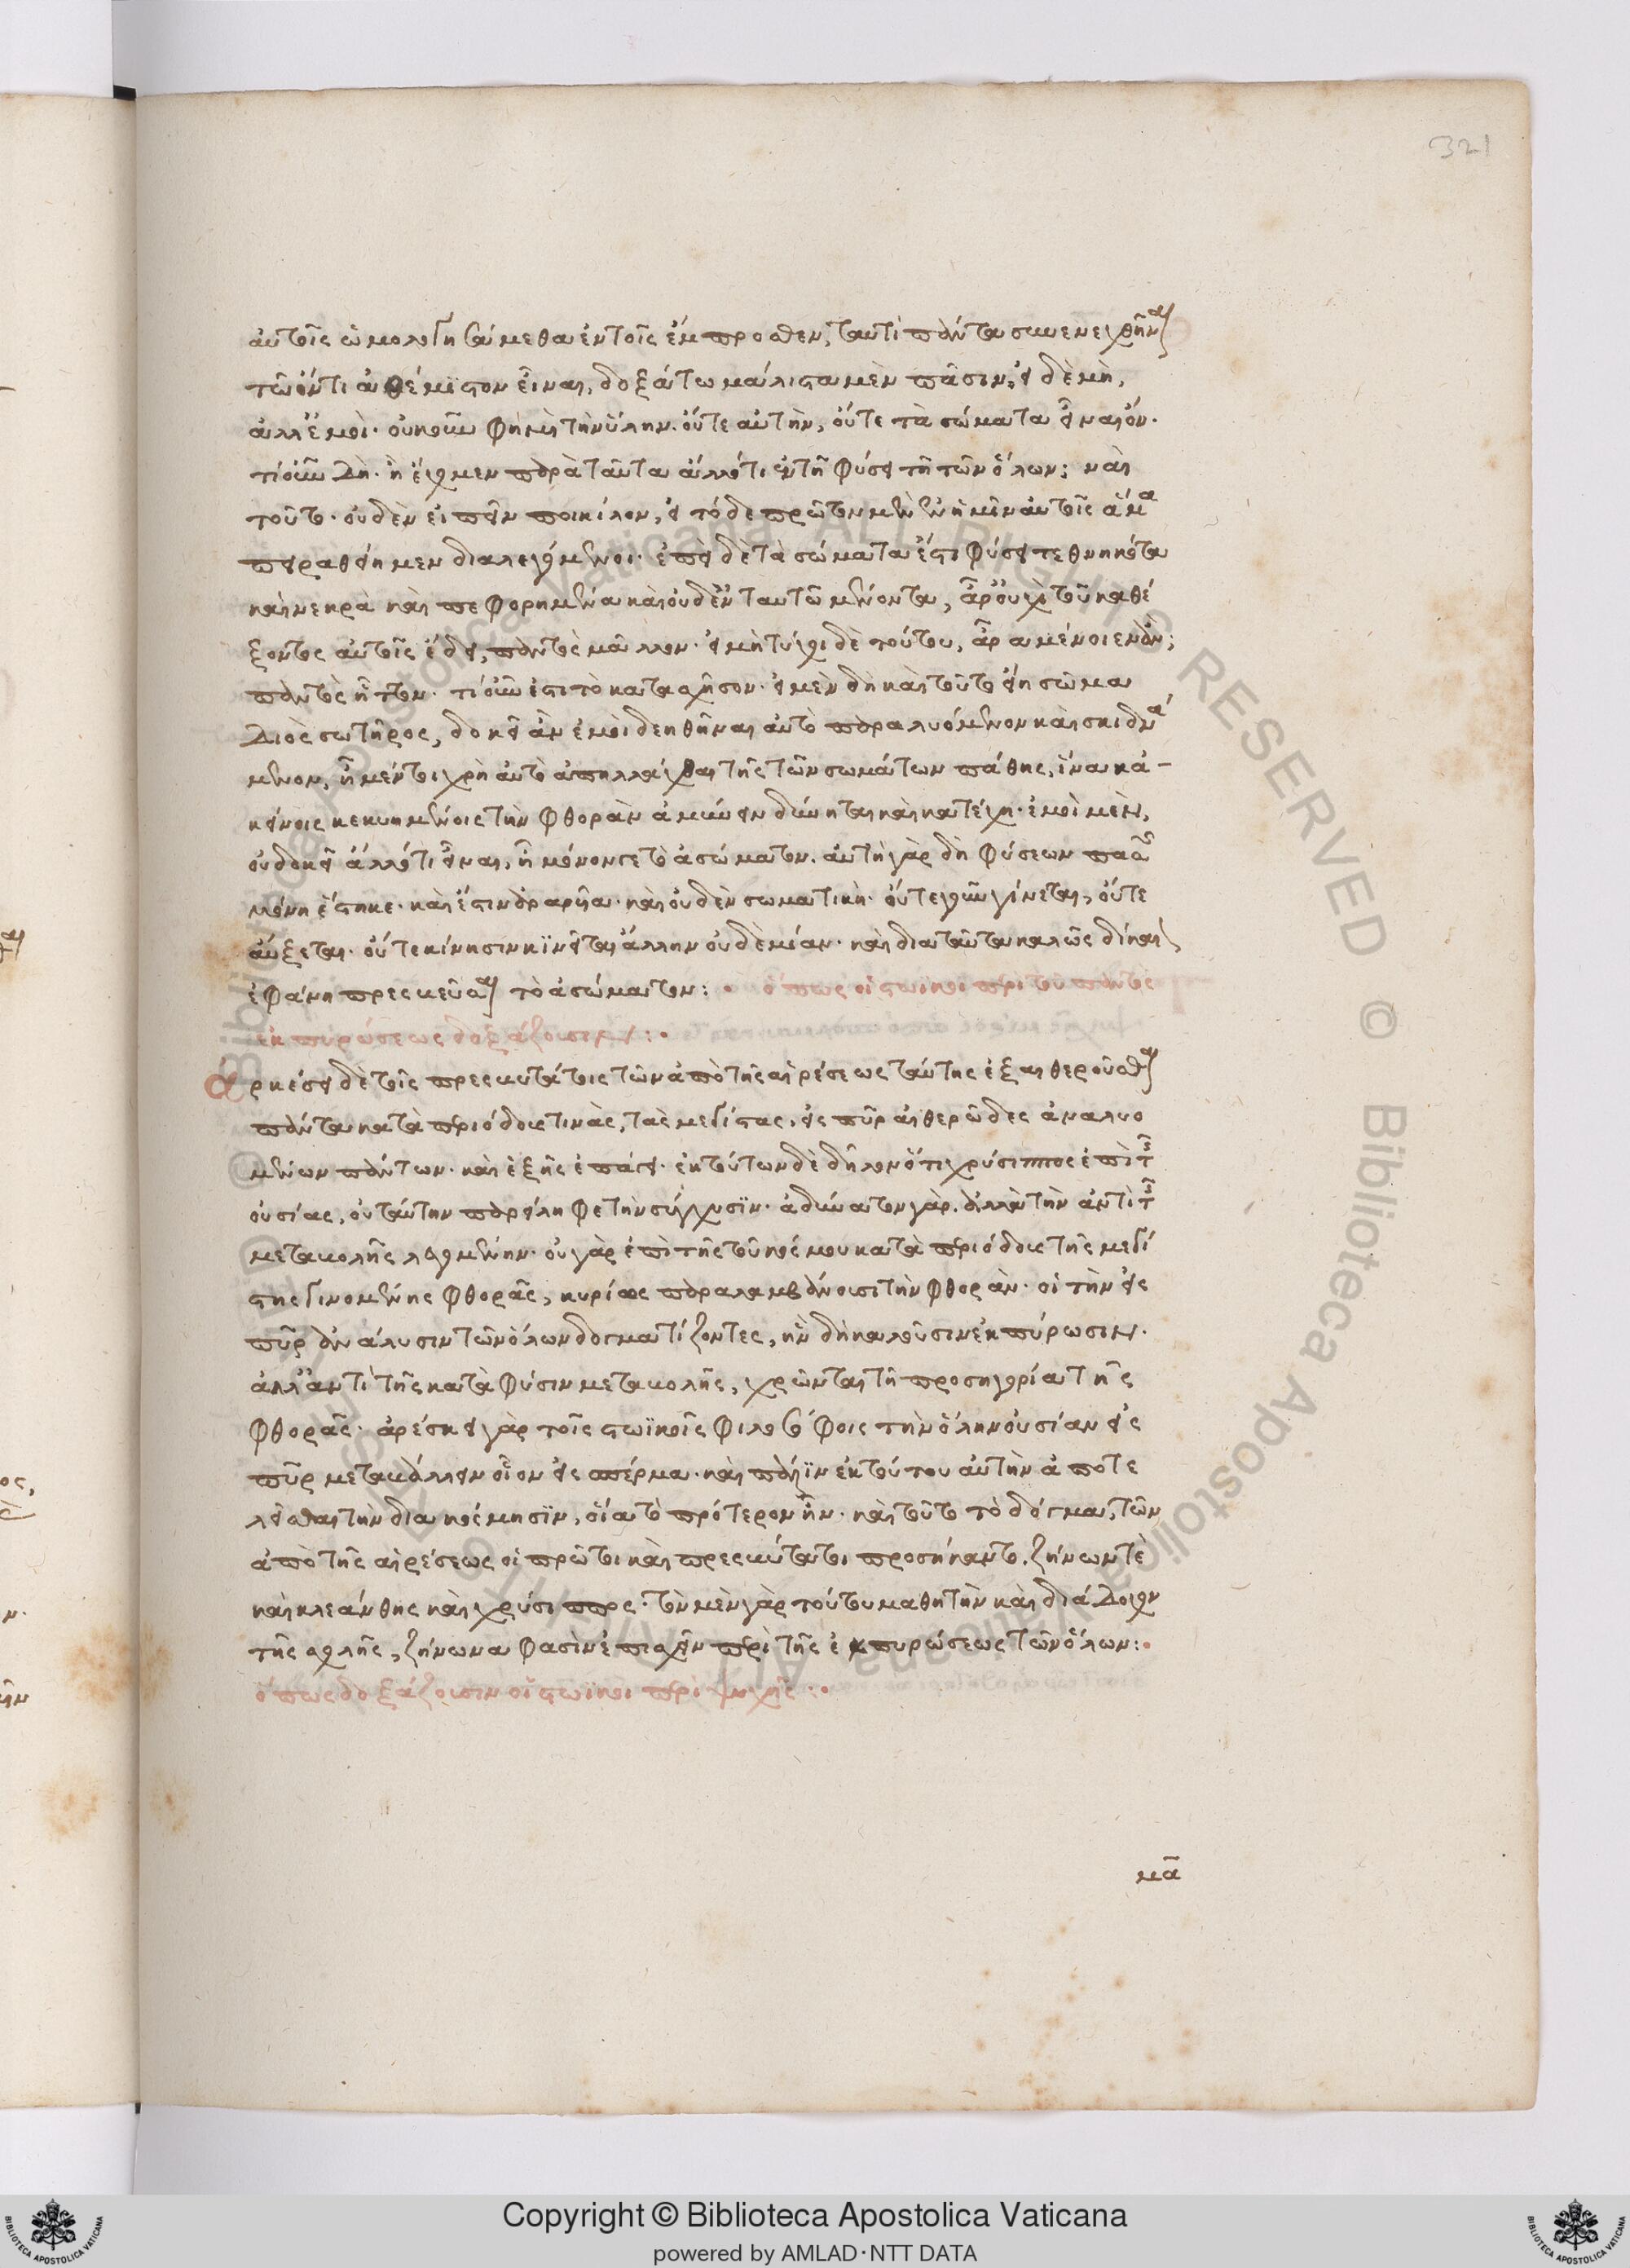 321
αὐτοῖς ὡμολογησάμεθα ἐν τοῖς ἔμπροσθεν, ταυτὶ πάντα συνενεχθῆναι
τῶ ὄντι ἀθέμιστον εἶναι, δοξάτω μάλιστα μὲν πᾶσιν, εἰ δὲ μὴ,
ἀλλ' ἐμοὶ. οὐκοῦν φημὶ τὴν ὕλην. οὔτε αὐτὴν, οὔτε τὰ σώματα εἶναι ὄν.
τί οὖν δὴ. ἢ ἔχομεν παρὰ ταῦτα ἄλλό τι ἐν τῆ φύσει τῆ τῶν ὅλων; ναὶ
τοῦτο. οὐδὲν εἰπεῖν ποικίλον, εἰ τόδε πρῶτον μὲν ἐν ἡμῖν αὐτοῖς ἅμα
πειραθείημεν διαλεγόμενοι. ἐπεὶ δὲ τὰ σώματα ἔστι φύσει τεθνηκότα
καὶ νεκρὰ καὶ πεφορημένα καὶ οὐδὲν ταυτῶ μένοντα, ἆρ' οὐχὶ τοῦ καθέ
ξοντος αὐτοῖς ἔδει, παντὸς μᾶλλον. εἰ μὴ τύχοι δὲ τούτου, ἆρα μένοιεν ἄν;
παντὸς ἧττον. τί οὖν ἐστι τὸ κατασχῆσον. εἰ μὲν δὴ καὶ τοῦτο εἴη σῶμα
Διὸς σωτῆρος, δοκεῖ ἂν ἐμοὶ δεηθῆναι αὐτὸ παραλυόμενον καὶ σκιδνά
μενον, ἦ μέντοι χρὴ αὐτὸ ἀπηλλάχθαι τῆς τῶν σωμάτων πάθης, ἵνα κἀ-
κείνοις κεκυημένοις τὴν φθορὰν ἀμύνειν δύνηται καὶ κατέχη. ἐμοὶ μὲν,
οὐ δοκεῖ ἄλλό τι εἶναι, ἢ μόνον γε τὸ ἀσώματον. αὐτὴ γὰρ δὴ φύσεων πασῶν
μόνη ἕστηκε. καὶ ἔστιν ἀραρῆα. καὶ οὐδὲν σωματικὴ. οὔτε γοῦν γίνεται, οὔτε
αὔξεται. οὔτε κίνησιν κϊνεῖται ἄλλην οὐδὲ μίαν. καὶ διὰ ταῦτα καλῶς δίκαι
ἐφάνη πρεσβεῦσαι τὸ ἀσώματον: • ὅπως οἱ στωϊκοὶ περὶ τοῦ παντὸς
ἐκπυρώσεως δοξάζουσιν: •
Ἀρκέσει δὲ τοῖς πρεσβυτάτοις τῶν ἀπὸ τῆς αἱρέσεως ταύτης ἐξαιθεροῦσθαι
πάντα κατὰ περιόδους τινὰς, τὰς μεγίστας, εἰς πῦρ αἰθερῶδες ἀναλυο
μένων πάντων. καὶ ἑξῆς ἐπάγει. ἐκ τούτων δὲ δῆλον ὅτι χρύσιππος ἐπὶ τῆς
οὐσίας, οὐ ταύτην παρείληφε τὴν σύγχυσϊν. ἀδύνατον γὰρ. ἀλλὰ τὴν ἀντὶ τῆς
μεταβολῆς λεγομένην. οὐ γὰρ ἐπὶ τῆς τοῦ κόσμου κατὰ περιόδους τῆς μεγί
στης γινομένης φθορᾶς, κυρίως παραλαμβάνουσι τὴν φθορὰν. οἱ τὴν εἰς
πῦρ ἀνάλυσιν τῶν ὅλων δογματίζοντες, ἣν δὴ καλοῦσιν ἐκπύρωσιν.
ἀλλ' ἀντὶ τῆς κατὰ φύσιν μεταβολῆς, χρῶνται τῆ προσηγορία τῆς
φθορᾶς. ἀρέσκει γὰρ τοῖς στωϊκοῖς φιλοσόφοις τὴν ὅλην οὐσίαν εἰς
πῦρ μεταβάλλειν οἷον εἰς σπέρμα. καὶ πάλϊν ἐκ τούτου αὐτὴν ἀποτε
λεῖσθαι τὴν διακόσμησϊν, οἵα τὸ πρότερον ἦν. καὶ τοῦτο τὸ δόγμα, τῶν
ἀπὸ τῆς αἱρέσεως οἱ πρῶτοι καὶ πρεσβύτατοι προσήκαντο. ζήνων τὲ
καὶ κλεάνθης καὶ χρύσιππος. τὸν μὲν γὰρ τούτου μαθητὴν καὶ διάδοχον
τῆς σχολῆς, ζήνωνα φασὶν ἐπισχεῖν περὶ τῆς ἐκπυρώσεως τῶν ὅλων: •
ὅπως δοξάζουσιν οἱ στωϊκοὶ περὶ ψυχῆς: •
μα
Copyright © Biblioteca Apostolica Vaticana
powered by AMLAD·NTT DATA